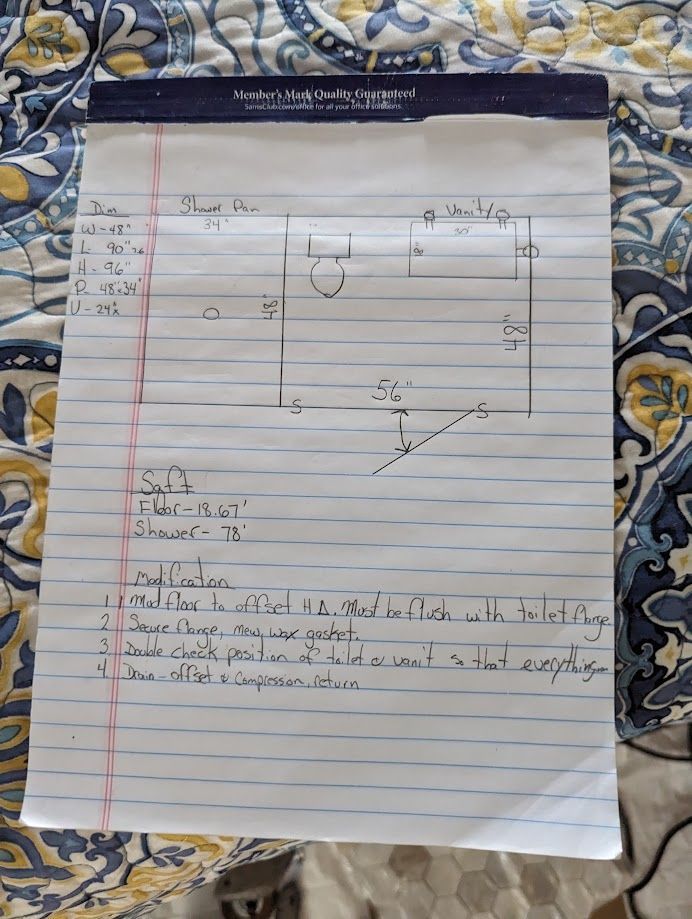 Member's Mark Quality Guaranteed
SamsClub.com/office for all your office solutions.
Dim
W - 48"
L - 90"
H - 96"
P 48"x34"
V - 24"
Shower Pan
34"
48"
Vanity
30"
18"
48"
56"
S
S
Sqft
Floor - 18.67'
Shower - 78'
Modification
1 Mud floor to offset H Δ. Must be flush with toilet flange
2 Secure flange, new, wax gasket.
3 Double check position of toilet & vanit so that everything
4. Drain - offset & compression, return